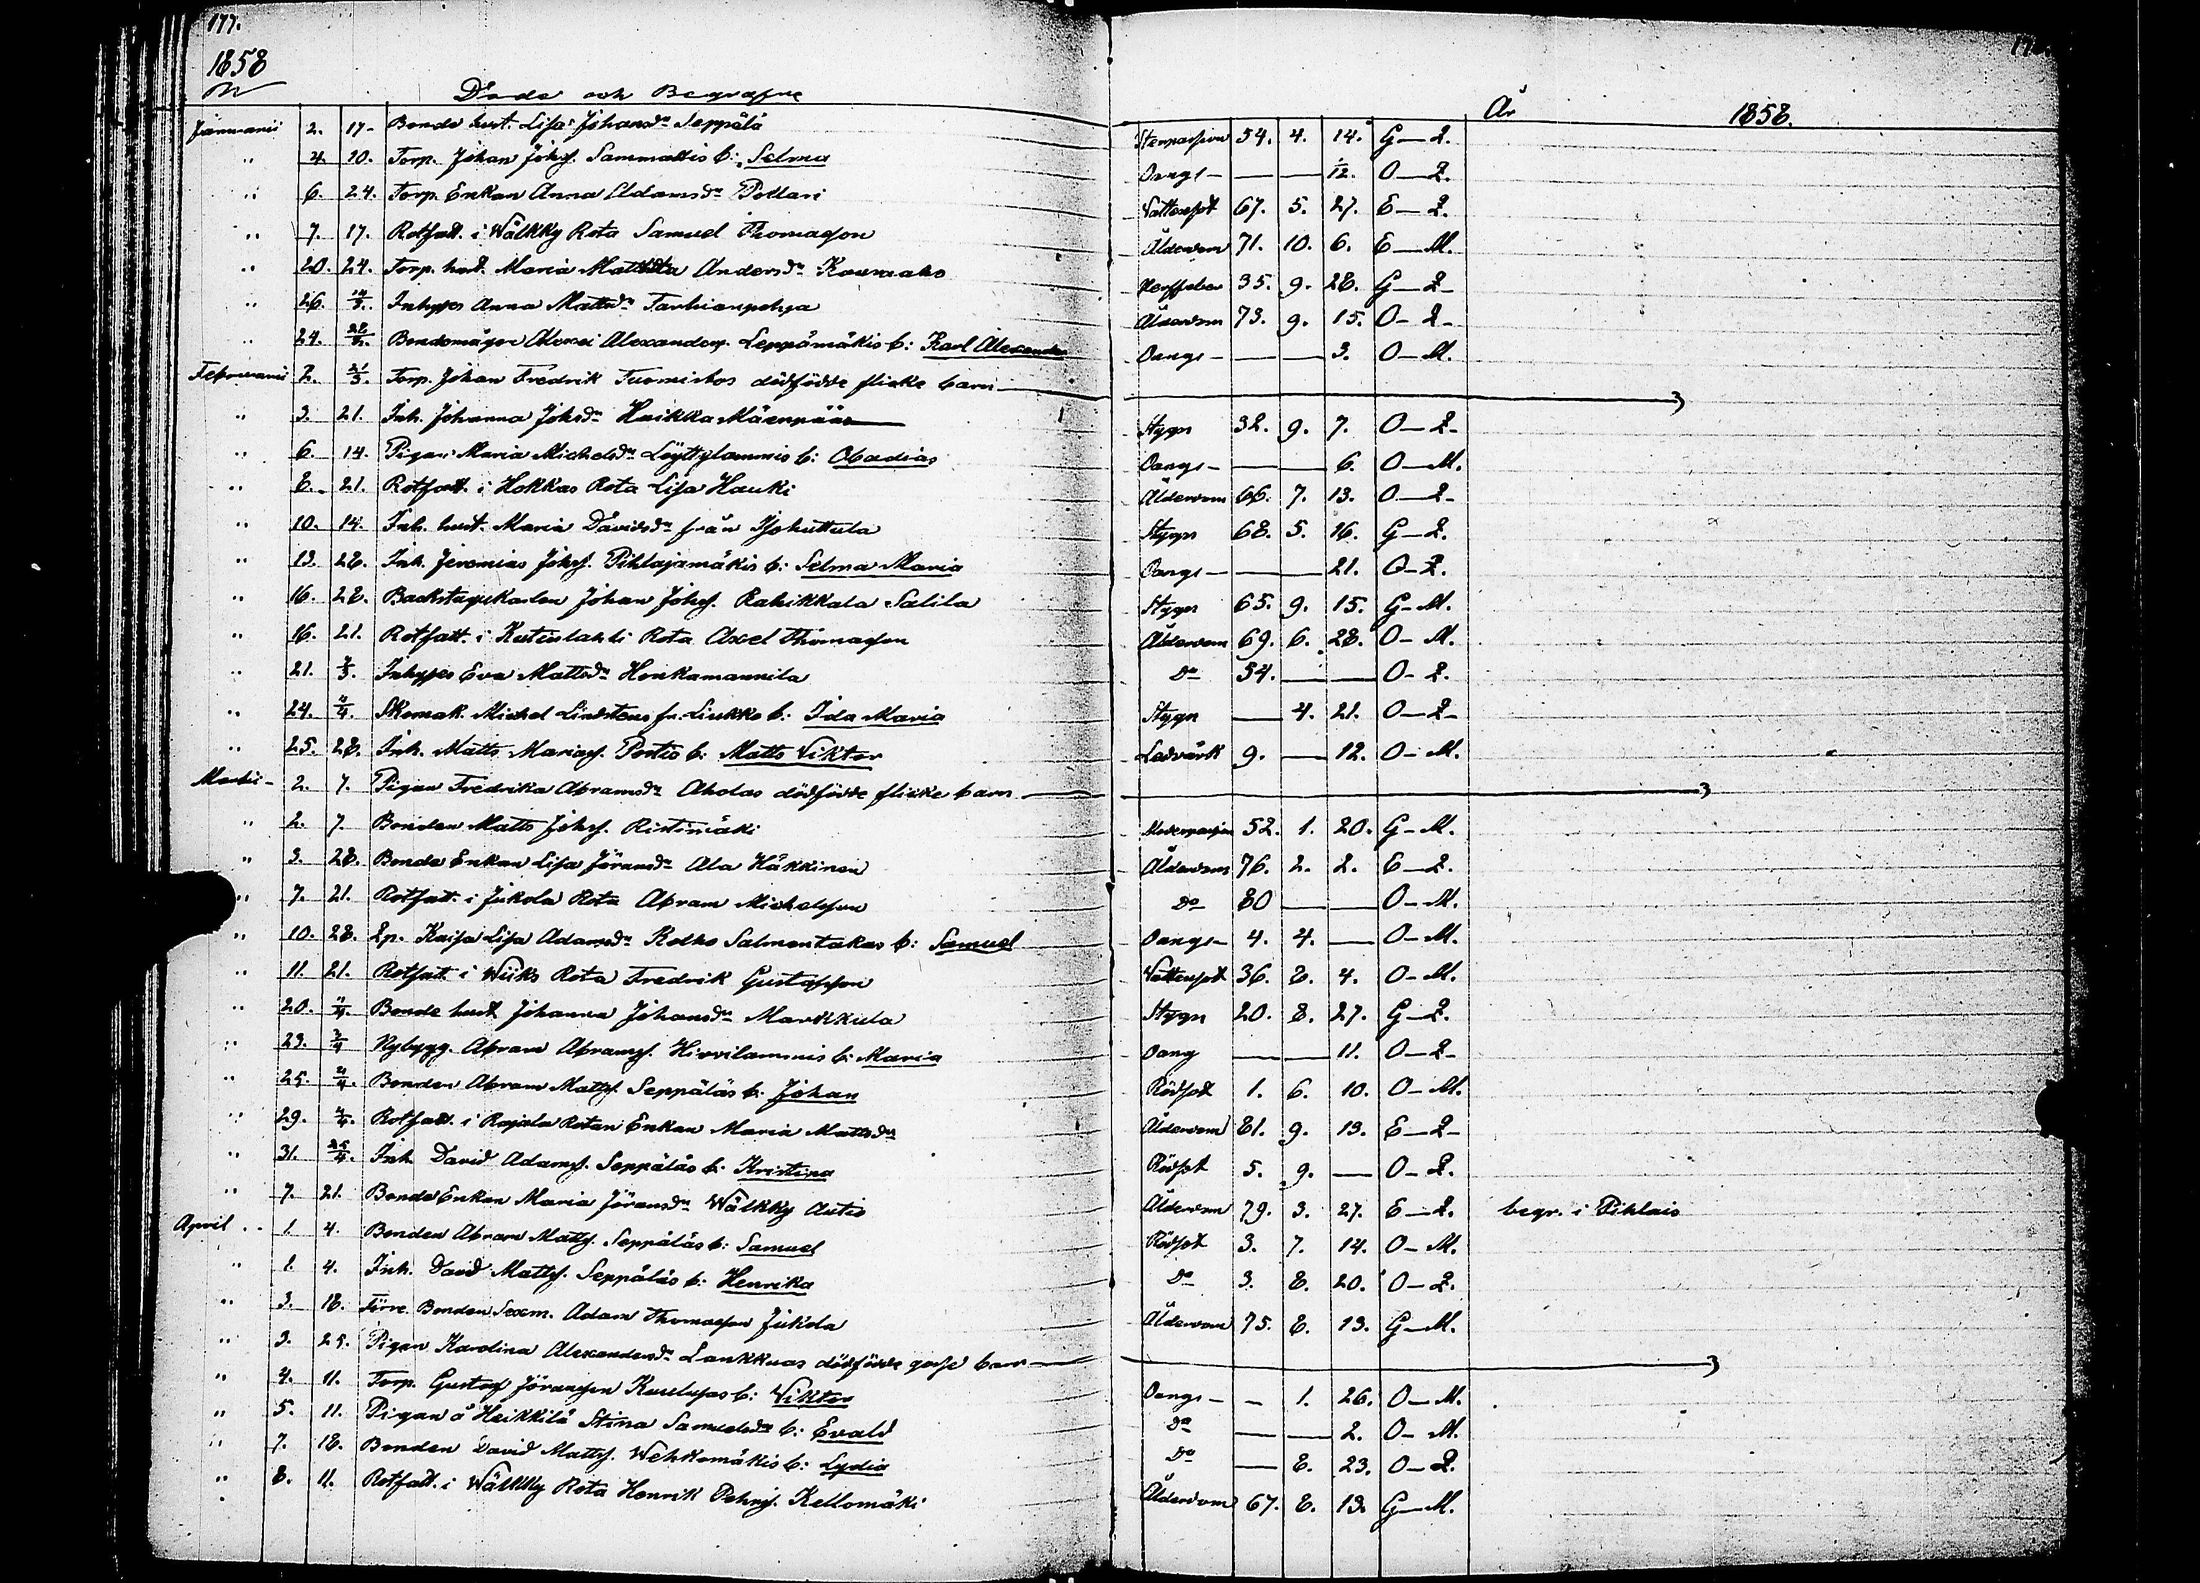 177.
1858
Döde och Begrafne
År 1858.
Januarii 2. 17. Bonde hust. Lisa Johansdr Seppälä Stenpassion 54. 4. 14. G — Q.
" 4. 10. Torp. Johan Johss. Sammattis b: Selma Oangf — — 12. O — Q.
" 6. 24. Torp. Enkan Anna Adamsdr Pollari Vattusot 67. 5. 27. E — Q.
" 7. 17. Rotfatt. i Wälkky Rota Samuel Thomasson Ålderdom 71. 10. 6. E — M.
" 20. 24. Torp. hust. Maria Andersdr 35. 9. 28. G — Q.
" 26. 14/3. Inhyses Anna Mattsdr Tarhianpohja Ålderdom 73. 9. 15. O — Q.
" 24. 28/2. Bondemågen Alexander. Leppämäkis b: Karl Alexander Oangf — — 3. O — M.
Februarii 2. 21/3. Torp. Johan Fredrik Tuomistos dödfödde flicke barn
" 3. 21. Inh. Johanna Johsdr Heikka Mäenpää Stygn 32. 9. 7. O — Q.
" 6. 14. Pigan Maria Michelsdr Löyttylammis b: Obadias Oangf — — 6. O — M.
" 8. 21. Rotfatt. i Hokkas Rota Lisa Hauki Ålderdom 66. 7. 13. O — Q.
" 10. 14. Inh. hust. Maria Davidsdr från Stygn 68. 5. 16. G — Q.
" 13. 28. Inh. Jeremias Johss. Pihlajamäkis b: Selma Maria Oangf — — 21. O — Q.
" 16. 28. Backstugukarlen Johan Johss. Rahikkala Salila Stygn 65. 9. 15. G — M.
" 16. 21. Rotfatt. i Kuteslahti Rota Axel Thomasson Ålderdom 69. 6. 28. O — M.
" 21. 7/3. Inhyses Eva Mattsdr Honkamannila Do 54. — — O — Q.
" 24. 4/4. Skomak. Michel Lindstens fr. Liukko b: Ida Maria Stygn — 4. 21. O — Q.
" 25. 28. Inh. Matts Mariass. Pontio b: Matts Viktor Ledvärk 9. — 12. O — M.
Martii 2. 7. Pigan Fredrika Abramsdr Aholas dödfödde flicke barn
" 2. 7. Bonden Matts Johss. Ristimäki 52. 1. 20. G — M.
" 3. 28. Bonde Enkan Lisa Jöransdr Ala Häkkinen Ålderdom 76. 2. 2. E — Q.
" 7. 21. Rotfatt. i Jukola Rota Abram Michelsson Do 80 — — O — M.
" 10. 28. Qp. Kaisa Lisa Adamsdr Kotko Salmentakas b: Samuel Oangf 4. 4. — O — M.
" 11. 21. Rotfatt. i Wiiks Rota Fredrik Gustafsson Vattusot 36. 8. 4. O — M.
" 20. 11/4. Bonde hust Johanna Johansdr Markkula Stygn 20. 8. 27. G — Q.
" 23. 2/4 Nybygg. Abram Abramss. Hirvilammis b: Maria Oangf — — 11. O — Q.
" 25. 4/4. Bonden Abram Mattss. Seppäläs b: Johan Rödsot 1. 6. 10. O — M.
" 29. 4/4. Rotfatt. i Rajala Rotan Enkan Maria Mattsdr Ålderdom 81. 9. 13. E — Q.
" 31. 25/4. Inh. David Adamss. Seppäläs b: Kristina Rödsot 5. 9. — O — Q.
" 7. 21. Bonde Enkan Maria Jöransdr Wälkky Autio Ålderdom 79. 3. 27. E — Q. begr. i Pihlais
April 1. 4. Bonden Abram Mattss. Seppäläs b: Samuel Rödsot 3. 7. 14. O — M.
" 1. 4. Inh. David Mattss. Seppäläs b: Henrika Do 3. 8. 20. O — Q.
" 3. 18. Förre Bonden Sexm. Adam Thomasson Jukola Ålderdom 75. 8. 13. G — M.
" 3. 25. Pigan Karolina Alexandersdr Lankkuas dödfödde gosse barn
" 4. 11. Torp. Gustaf Jöransson b: Viktor Oangf — 1. 26. O — M.
" 5. 11. Pigan å Heikkilä Stina Samuelsdr b: Evald Do — — 2. O — M.
" 7. 18. Bonden David Mattss. Wehkomäkis b: Lydia Do — 8. 23. O — Q.
" 8. 11. Rotfatt. i Wälkky Rota Henrik Pehrss. Kellomäki Ålderdom 67. 8. 13. G — M.